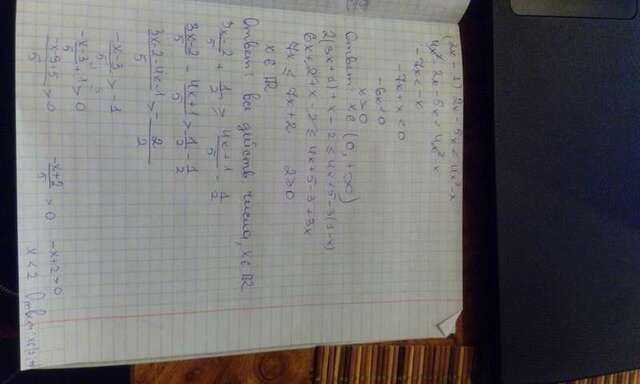 (2x - 1) 2x - 5x < 4x² - x
4x² - 2x - 5x < 4x² - x
- 7x < - x
- 7x + x < 0
- 6x < 0
x > 0
Ответ: x ∈ (0, +∞)
2(3x+1) + x - 2 ≤ 4x + 5 - 3(1 - x)
6x + 2 + x - 2 ≤ 4x + 5 - 3 + 3x
7x ≤ 7x + 2 2 > 0
x ∈ R
Ответ: все действ числа, x ∈ R
(3x-2)/5 + 1/2 > (4x+1)/5 - 1/2
(3x-2)/5 - (4x+1)/5 > - 1/2 - 1/2
(3x-2-4x-1)/5 > - 2/2
(-x-3)/5 > -1
(-x-3)/5 + 1 > 0
(-x-3+5)/5 > 0 (-x+2)/5 > 0 -x+2 > 0
x < 2 Ответ: